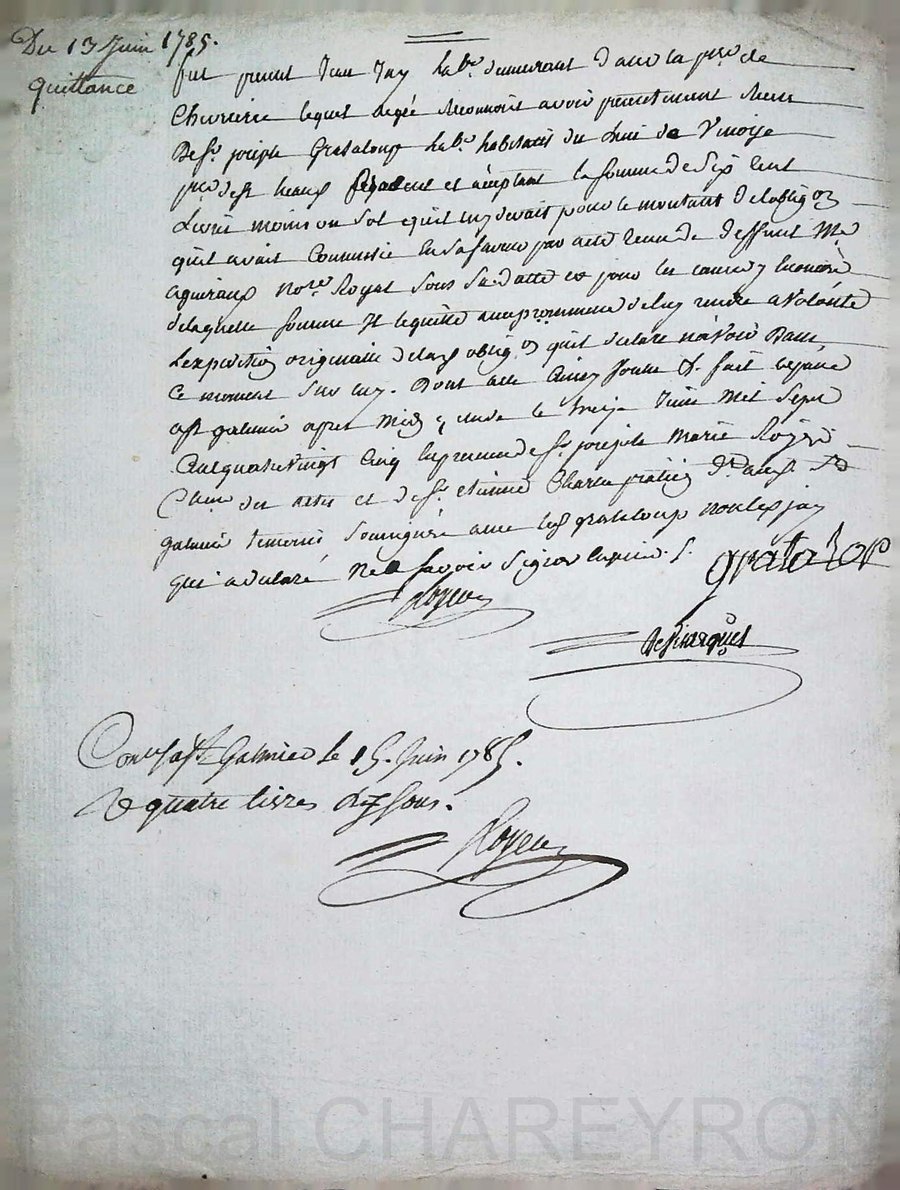 Du 13 Juin 1785.
quittance
fut present Jean Jay lab.r demeurant dans la p.sse de
Chevrieres lequel de gré reconnoit avoir presentement receu
De S.r joseph Grataloup lab.r habitant du lieu de
p.sse de S.t present et acceptant la somme de Six cent
Livres moins un Sol qu'il luy devait pour le montant de lobligon
qu'il avait Consentie en sa faveur par acte receu de deffunt M.e
no.re Royal Sous Sa datte et pour les causes y enoncés
de laquelle somme Il le quitte avec promesse de luy rendre a Volonté
Lexpedition originaire de lad obligon qu'il declare navoir Dans
Ce moment Sur luy. Dont acte fait et passé
a S.t galmier apres midy le treize Juin Mil Sept
Cent quatre vingt Cinq en presence de S.r joseph Marie Royer
et de S.r etienne Charles praticien dud. S.t
galmier temoins Soussignés avec led grataloup non led jay
qui a declaré ne Savoir Signer
gratalop
Royer
Con.lé a S.t Galmier le 15. Juin 1785.
R quatre livres dix sous.
Royer
Pascal CHAREYRON